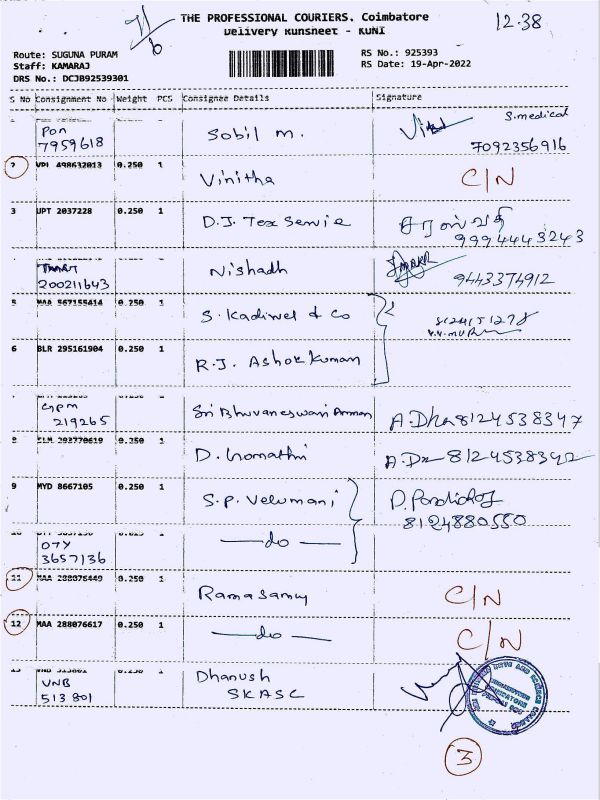 THE PROFESSIONAL COURIERS. Coimbatore
Delivery Runsheet - KUNI
12.38
Route: SUGUNA PURAM
Staff: KAMARAJ
DRS No.: DCJB92539301
RS No.: 925393
RS Date: 19-Apr-2022
S No Consignment No Weight PCS Consignee Details Signature
Pon
7959618 Sobil M. S.medical
7092356916
2 VPL 498632013 0.250 1 Vinitha C/N
3 UPT 2037228 0.250 1 D.J. Tex Service சரஸ்வதி
9994443243
200211643 Nishadh 9443374912
5 MAA 567155414 0.250 1 S. Kadivel & Co
6 BLR 295161904 0.250 1 R.J. Ashok Kumar
GPM
219265 Sri Bhuvaneswari Amman A.Dha 8124538347
8 SLM 0.250 1 D. Gomathi 8124538342
9 MYD 8667105 0.250 1 S.P. Velumani
8124880550
10
OTY
3657136 do
11 MAA 288076449 0.250 1 Ramasamy C/N
12 MAA 288076617 0.250 1 do C/N
13
VNB
513801 Dhanush
SKASC
3